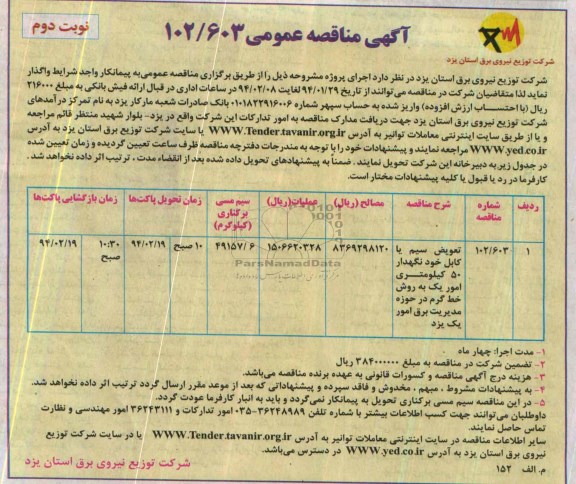 نوبت دوم
آگهی مناقصه عمومی ۱۰۲/۶۰۳
شرکت توزیع نیروی برق استان یزد
شرکت توزیع نیروی برق استان یزد در نظر دارد اجرای پروژه مشروحه ذیل را از طریق برگزاری مناقصه عمومی به پیمانکار واجد شرایط واگذار
نماید لذا متقاضیان شرکت در مناقصه می‌توانند از تاریخ ۹۴/۰۱/۲۹ لغایت ۹۴/۰۲/۰۸ در ساعات اداری در قبال ارائه فیش بانکی به مبلغ ۲۱۶۰۰۰
ریال (با احتساب ارزش افزوده) واریز شده به حساب سپهر شماره ۰۱۰۱۸۲۲۹۱۶۰۰۶ بانک صادرات شعبه مارکار یزد به نام تمرکز درآمدهای
شرکت توزیع نیروی برق استان یزد جهت دریافت مدارک مناقصه به امور تدارکات این شرکت واقع در یزد- بلوار شهید منتظر قائم مراجعه
و یا از طریق سایت اینترنتی معاملات توانیر به آدرس WWW.Tender.tavanir.org.ir یا سایت شرکت توزیع برق استان یزد به آدرس
WWW.yed.co.ir مراجعه نمایند و پیشنهادات خود را با توجه به مندرجات دفترچه مناقصه ظرف ساعت تعیین گردیده و زمان تعیین شده
در جدول زیر به دبیرخانه این شرکت تحویل نمایند . ضمناً به پیشنهادهای تحویل داده شده بعد از انقضاء مدت ، ترتیب اثر داده نخواهد شد.
کارفرما در رد یا قبول یا کلیه پیشنهادات مختار است.
ردیف شماره مناقصه شرح مناقصه مصالح (ریال) عملیات(ریال) سیم مسی برکناری (کیلوگرم) زمان تحویل پاکت‌ها زمان بازگشایی پاکت‌ها
۱ ۱۰۲/۶۰۳ تعویض سیم با کابل خود نگهدار ۵۰ کیلومتری امور یک به روش خط گرم در حوزه مدیریت برق امور یک یزد ۸۳۶۹۲۹۸۱۲۰ ۱۵۰۶۶۲۰۳۲۸ ۴۹۱۵۷/۶ ۱۰ صبح ۹۴/۰۲/۱۹ ۱۰:۳۰ صبح ۹۴/۰۲/۱۹
ParsNamadData
۱- مدت اجرا: چهار ماه
۲- تضمین شرکت در مناقصه به مبلغ ۳۸۴۰۰۰۰۰۰ ریال
۳- هزینه درج آگهی مناقصه و کسورات قانونی به عهده برنده مناقصه می‌باشد.
۴- به پیشنهادات مشروط ، مبهم ، مخدوش و فاقد سپرده و پیشنهاداتی که بعد از موعد مقرر ارسال گردد ترتیب اثر داده نخواهد شد.
۵- در این مناقصه سیم مسی برکناری تحویل به پیمانکار نمی‌گردد و باید به انبار کارفرما عودت گردد.
داوطلبان می‌توانند جهت کسب اطلاعات بیشتر با شماره تلفن ۳۶۲۴۸۹۸۹-۰۳۵ امور تدارکات و ۳۶۲۴۳۱۱۱ امور مهندسی و نظارت
تماس حاصل نمایند.
سایر اطلاعات مناقصه در سایت اینترنتی معاملات توانیر به آدرس WWW.Tender.tavanir.org.ir یا در سایت شرکت توزیع
نیروی برق استان یزد به آدرس WWW.yed.co.ir در دسترس می‌باشد.
م. الف ۱۵۲
شرکت توزیع نیروی برق استان یزد